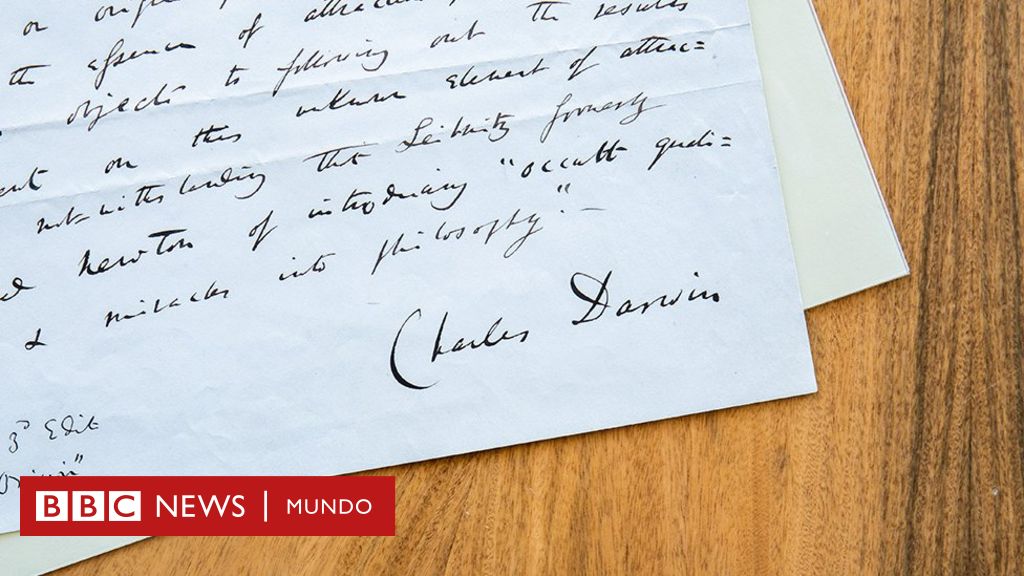 or
the essence of
objects to following out the results
on this unknown element of attrac=
notwithstanding that Leibnitz formerly
Newton of introducing "occult quali=
& miracles into philosophy".—
Charles Darwin
3d Edit
BBC NEWS | MUNDO